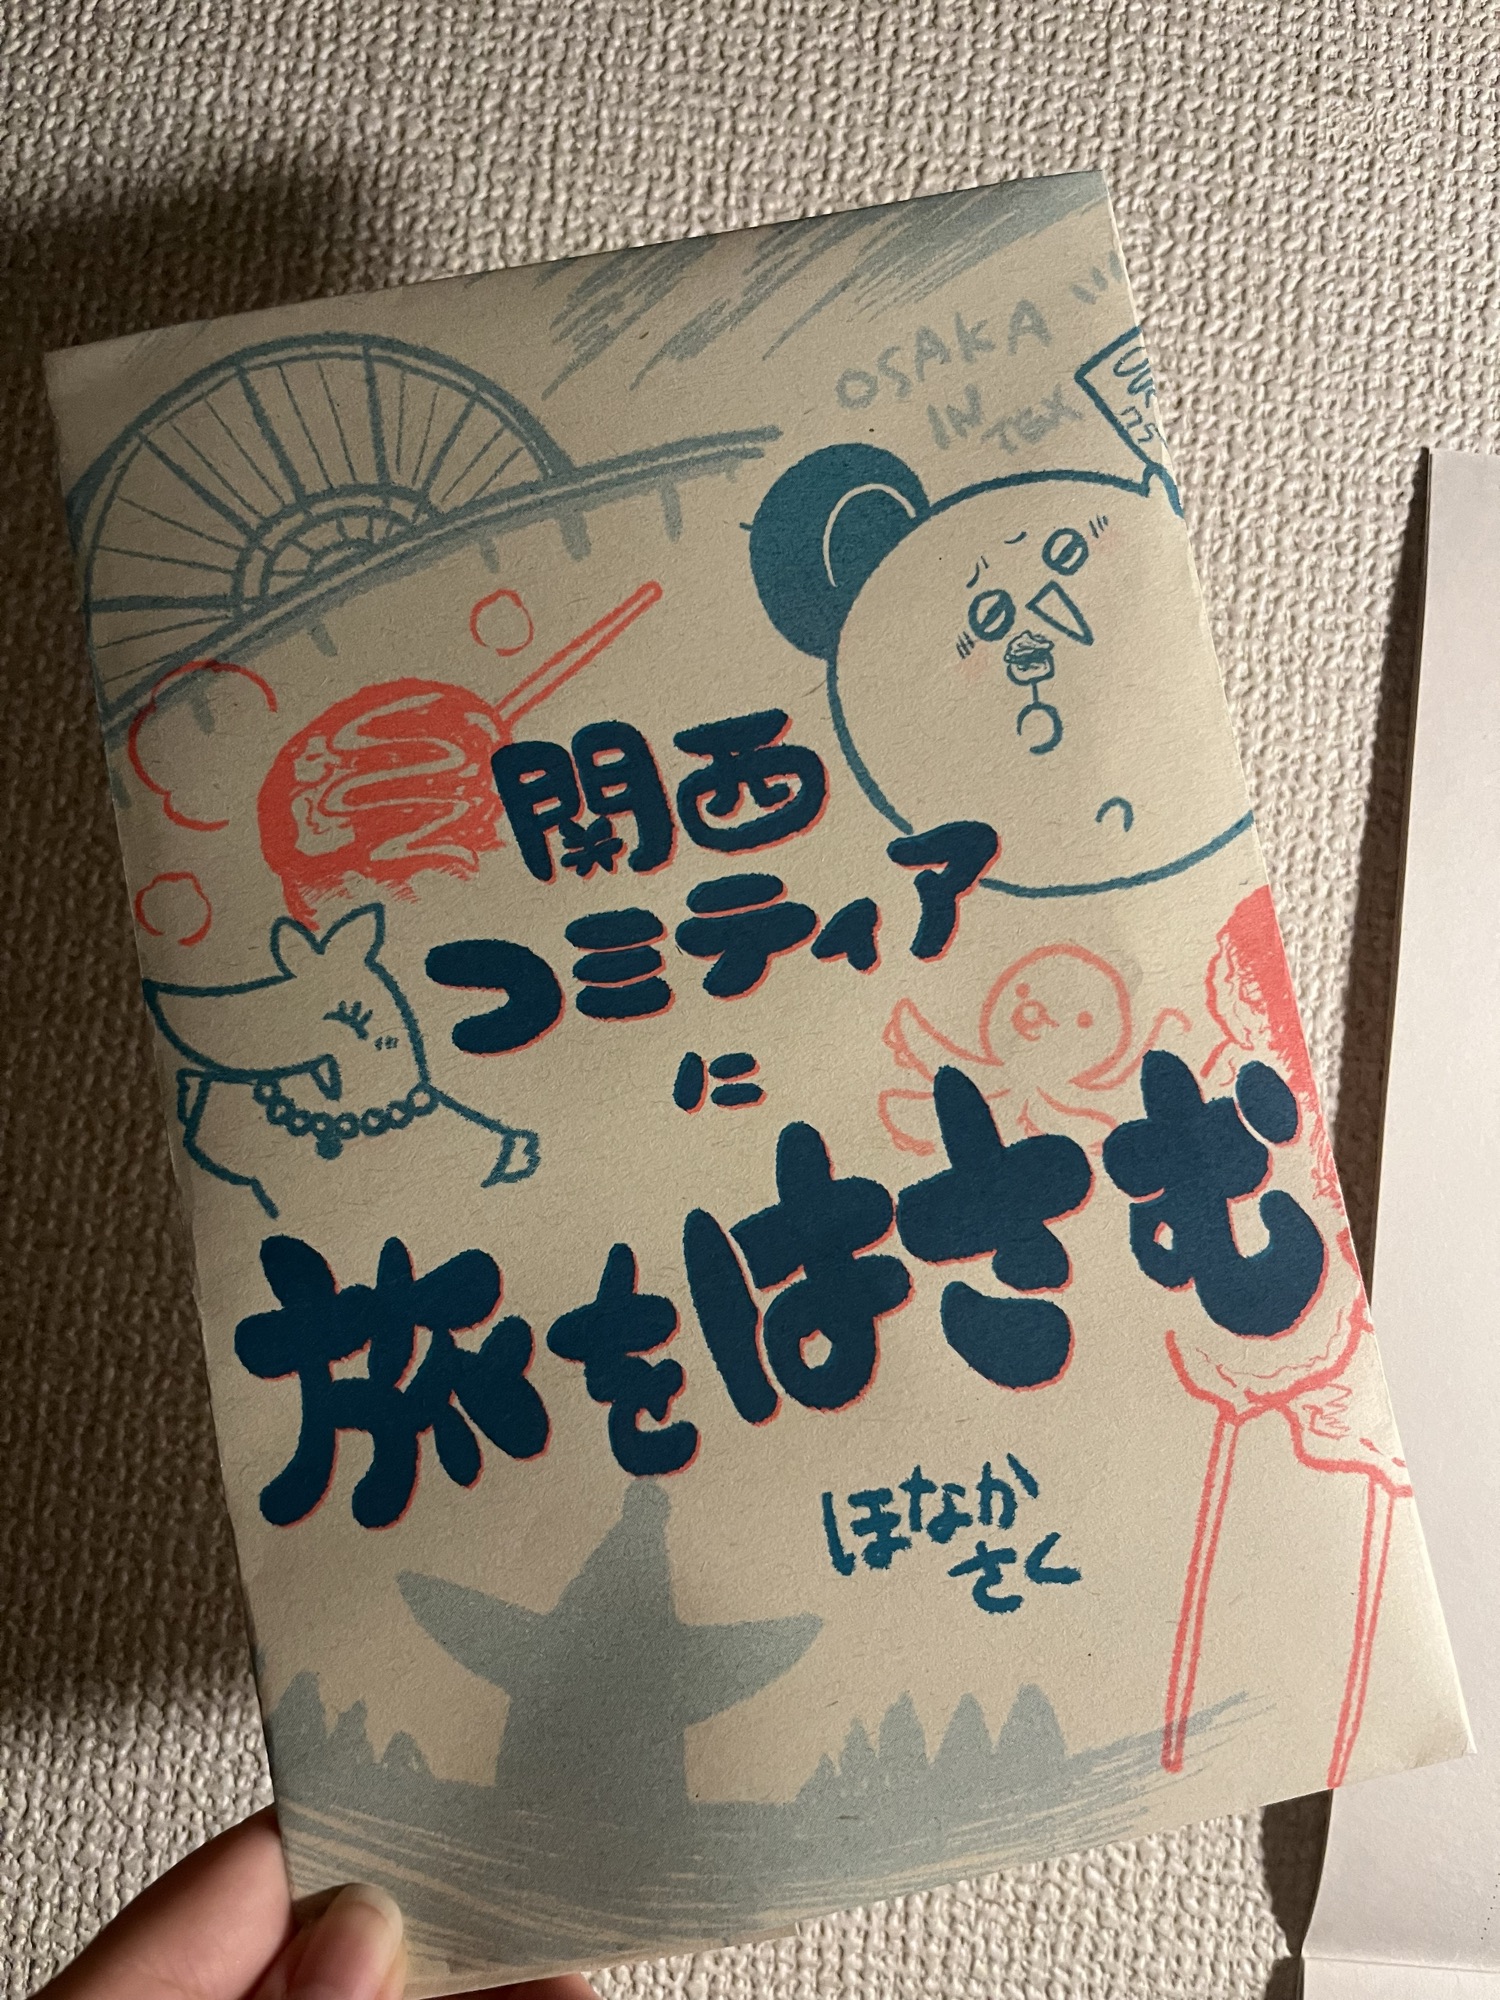 OSAKA
INTEX
関西
コミティア
に
旅をはさむ
ほなか
さく